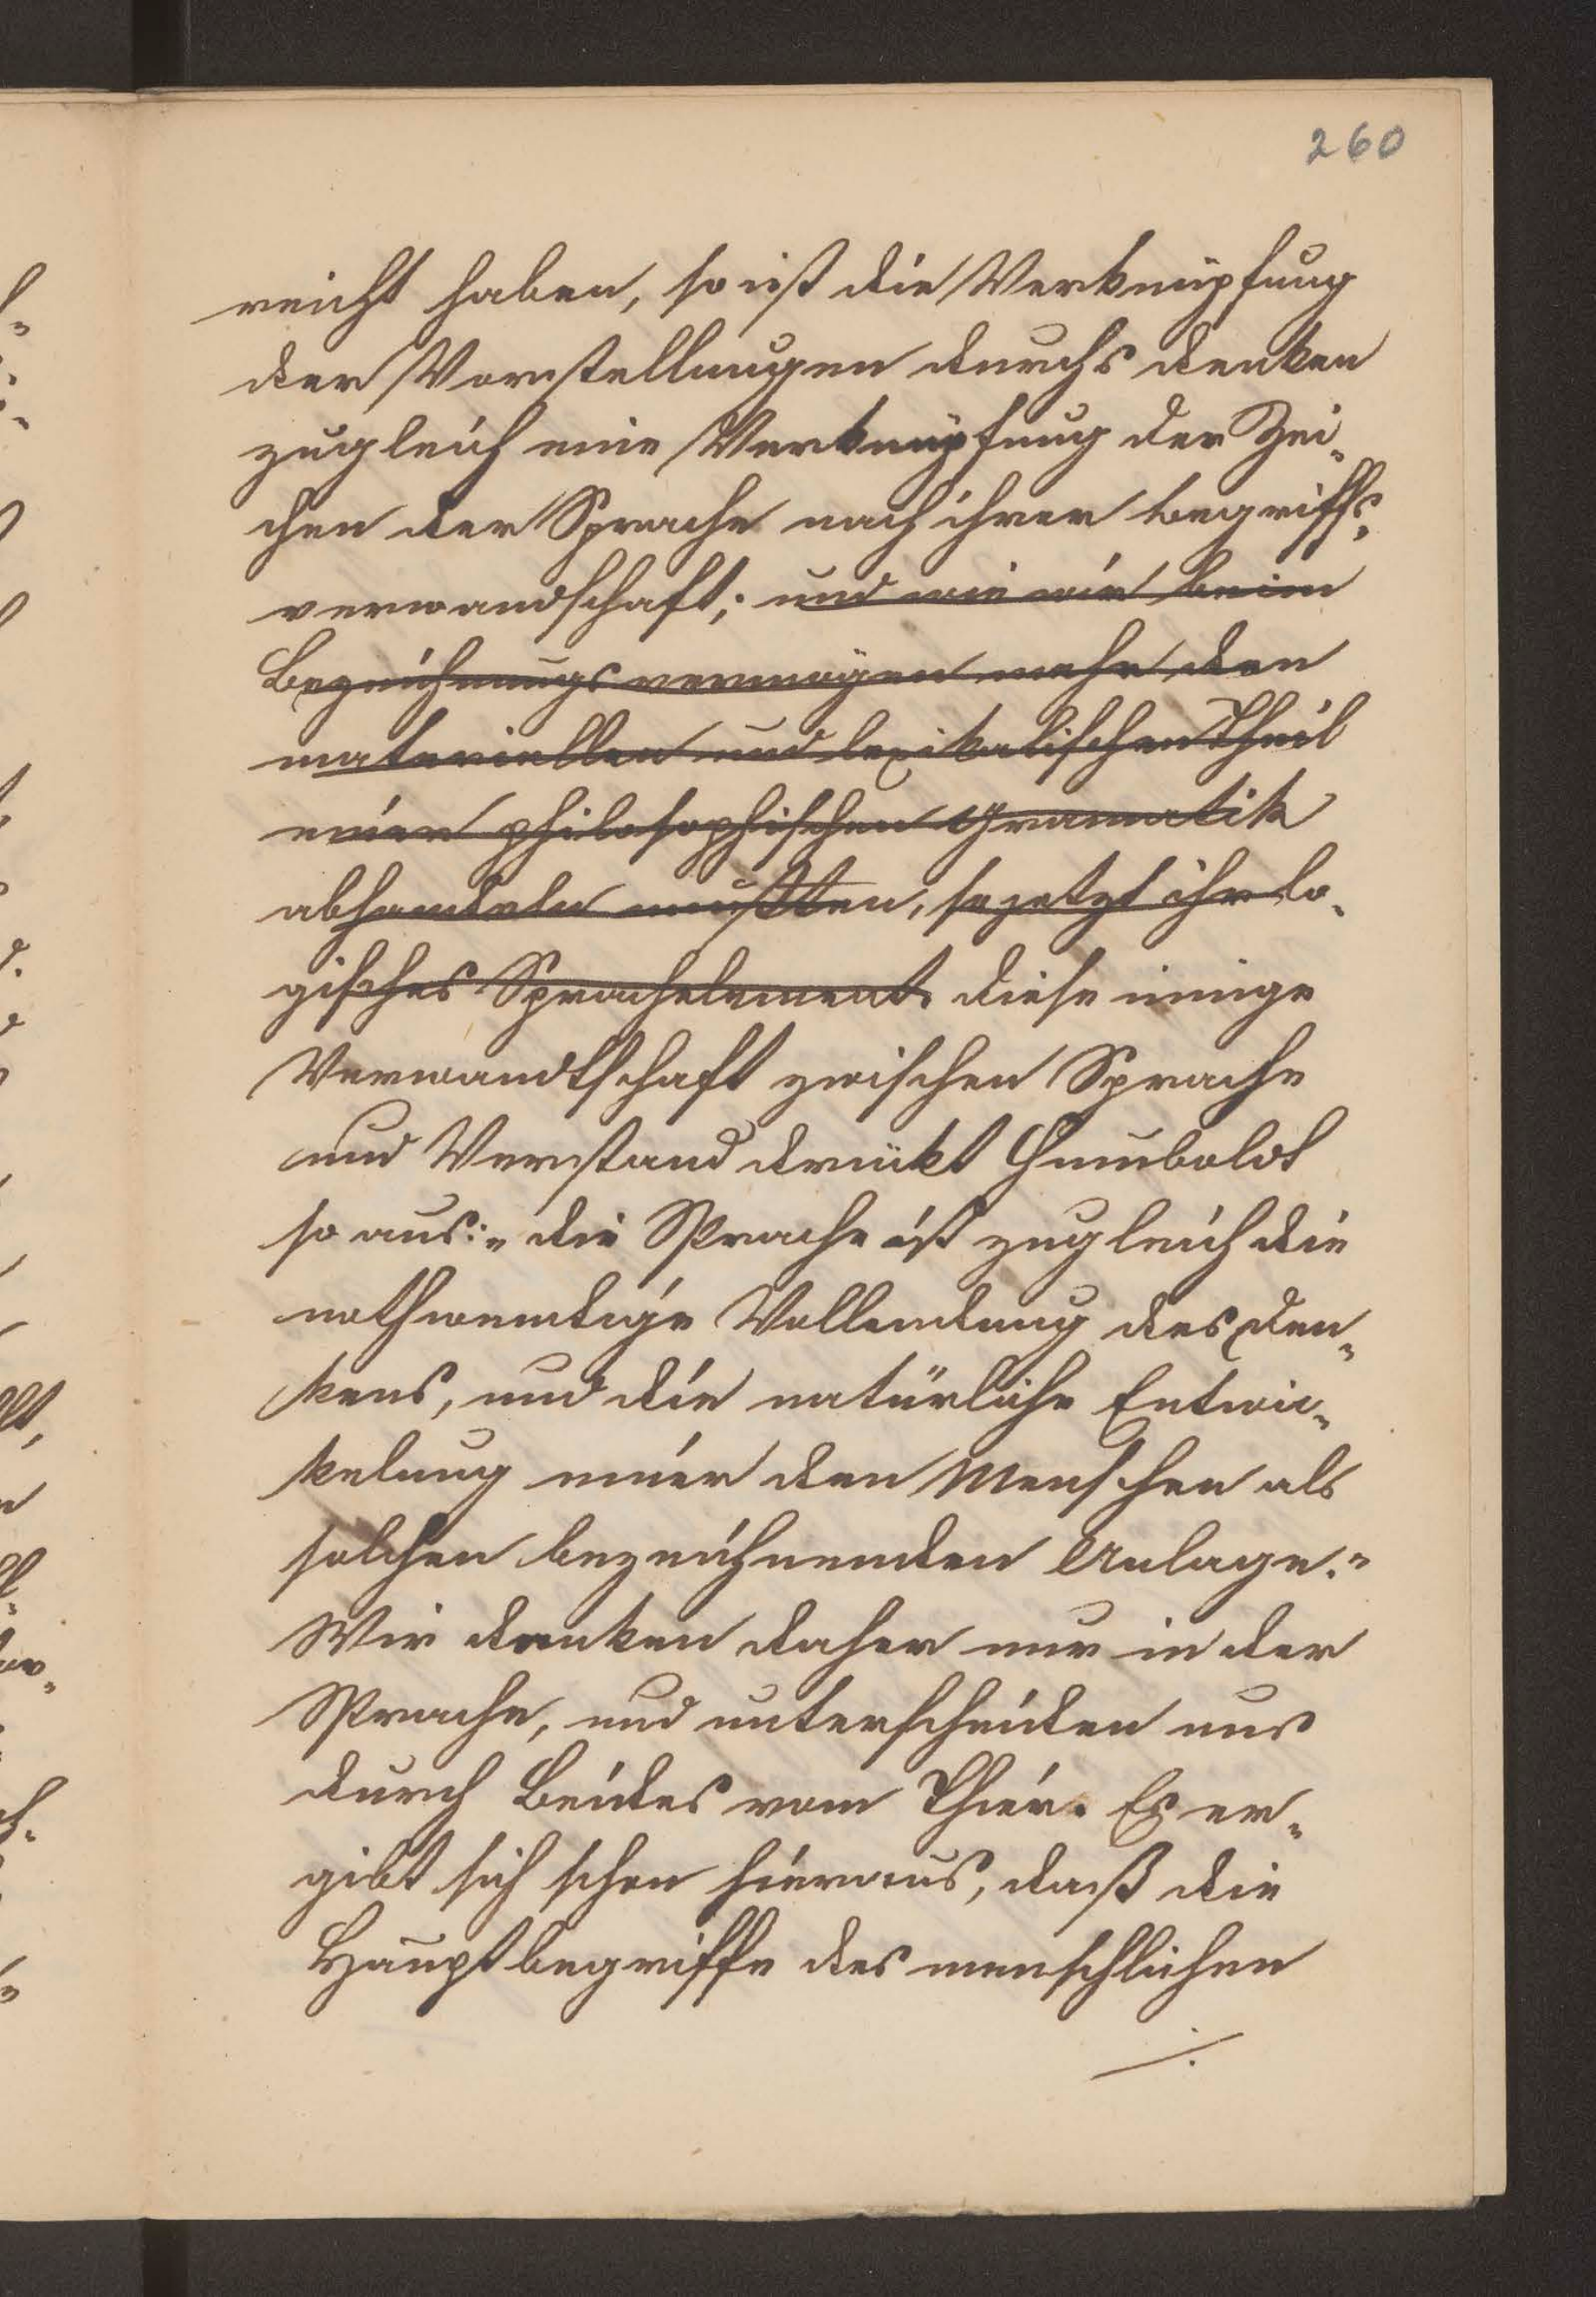 260
reicht haben, so ist die Verknüpfung
der Vorstellungen durchs denken
zugleich eine Verknüpfung der Zei-
chen der Sprache nach ihrer begriffs-
verwandschaft; und wie wir beim
Bezeichnungsvermögen mehr den
materiellen und lexikalischen Theil
einer philosophischen Grammatik
abhandeln mußten, so jetzt ihr lo-
gisches Sprachelement. diese innige
Verwandtschaft zwischen Sprache
und Verstand drückt Humboldt
so aus: „die Sprache ist zugleich die
nothwendige Vollendung des Den-
kens, und die natürliche Entwic-
kelung einer den Menschen als
solchen bezeichnenden Anlage.“
Wir denken daher nur in der
Sprache, und unterscheiden uns
durch Beides vom Thier. Es er-
gibt sich schon hieraus, daß die
Hauptbegriffe des menschlichen
./.